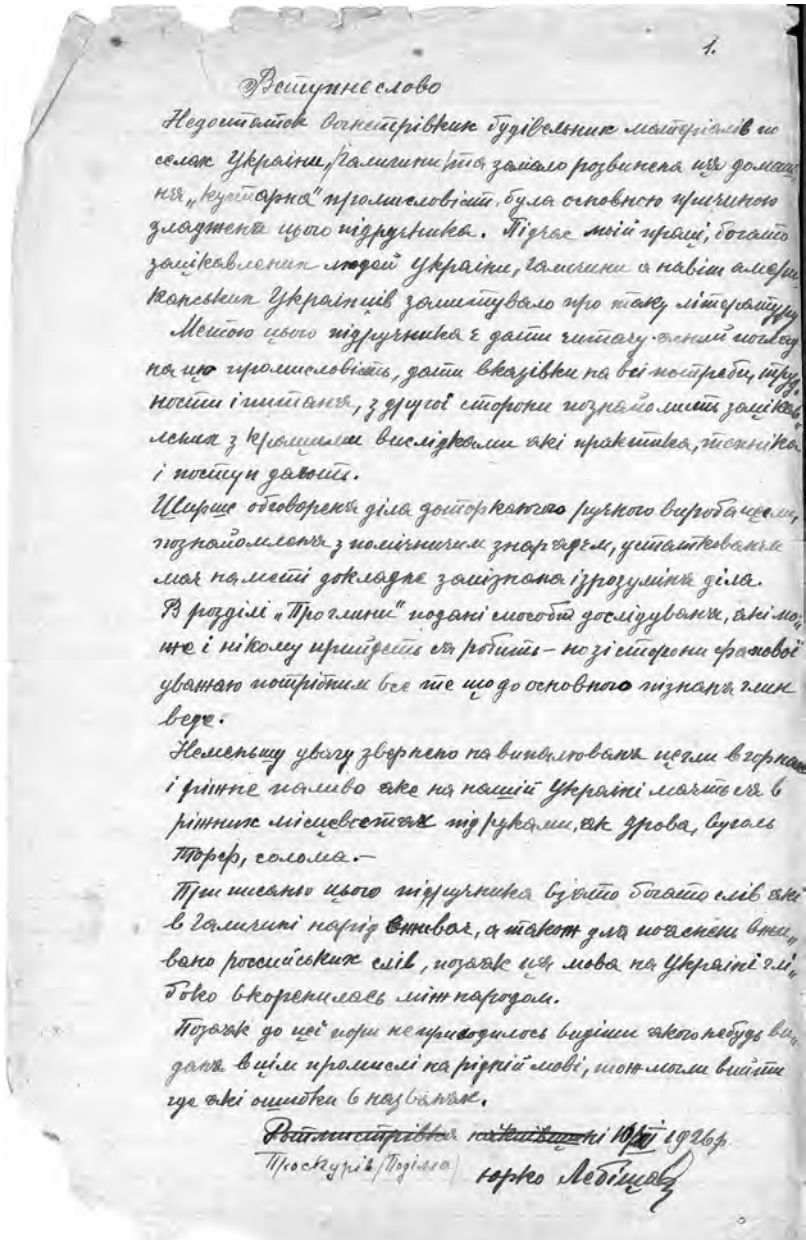 1.
Вступне слово
Недостаток вогнетрівких будівельних матеріялів по
селах України, /Галичини/ та замало розвинена ця домаш„
ня „кустарна" промисловість, була основною причиною
зладженя цього підручника. Підчас моїй праці, богато
зацікавлених людей України, Галичини а навіть амери„
канських Українців запитувало про таку літературу
Метою цього підручника є дати читачу ясний погляд
на цю промисловість, дати вказівки на всі потреби, труд„
ности і питаня, з другої сторони познайомить зацікав„
лених з кращими вислідками які практика, техніка
і поступ дають.
Ширше обговореня діла доторкаючого ручного вироба цегли,
познайомленя з помічничим знарядєм, устаткованєм
має на меті докладне запізнаня і зрозуміня діла.
В розділі „Про глини" подані способи досліджуваня, які мо„
же і нікому прийдеть ся робить – но зі сторони фахової
уважаю потрібним все те що до основного пізнаня глин
веде.
Неменьшу увагу звернено на випалюваня цегли в горнах
і ріжне паливо яке на нашій Україні маєть ся в
ріжних місцевостях під руками, як дрова, вуголь
Торф, солома.–
При писаню цього підручника взято богато слів які
в Галичині нарід вживає, а також для пояснень вжи„
вано российських слів, позаяк ця мова на Україні глі„
боко вкоренилась між народом.
Позаяк до цеї пори не приходилось видіти якого небудь ви„
даня в цім промислі на рідній мові, тож могли вийти
где які ошибки в названях.
Ротмистрівка на Київщині 10/VI 1926р.
Проскурів /Поділля/
Юрко Лебіщак